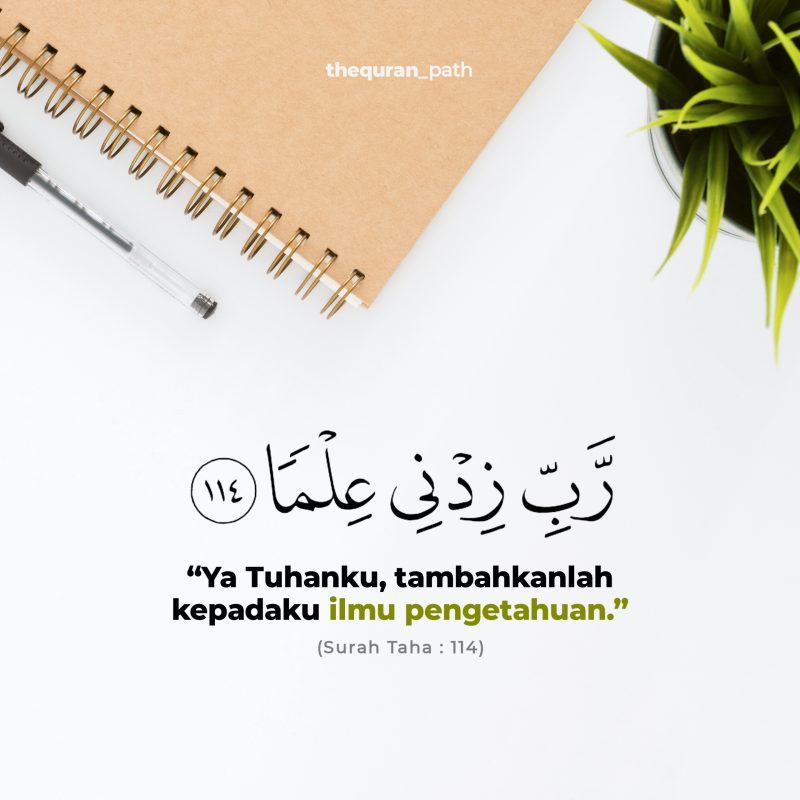 thequran_path
رَّبِّ زِدۡنِي عِلۡمَا ١١٤
“Ya Tuhanku, tambahkanlah
kepadaku ilmu pengetahuan.”
(Surah Taha : 114)